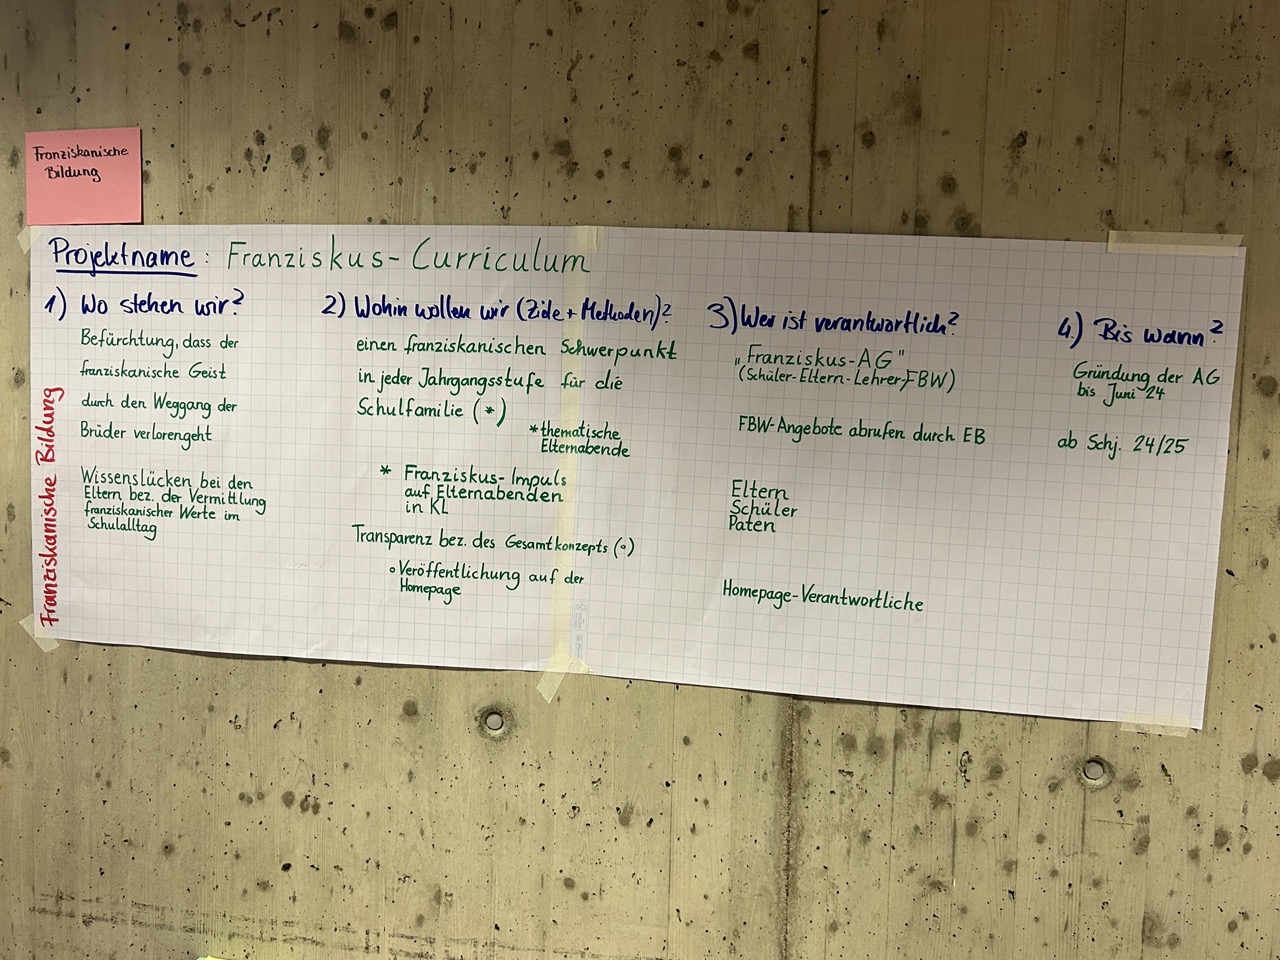 Franziskanische
Bildung
Projektname: Franziskus-Curriculum
Franziskanische Bildung
1) Wo stehen wir?
Befürchtung, dass der
franziskanische Geist
durch den Weggang der
Brüder verlorengeht
Wissenslücken bei den
Eltern bez. der Vermittlung
franziskanischer Werte im
Schulalltag
2) Wohin wollen wir (Ziele + Methoden)?
einen franziskanischen Schwerpunkt
in jeder Jahrgangsstufe für die
Schulfamilie (*)
* thematische
Elternabende
* Franziskus-Impuls
auf Elternabenden
in KL
Transparenz bez. des Gesamtkonzepts (°)
° Veröffentlichung auf der
Homepage
3) Wer ist verantwortlich?
„Franziskus-AG"
(Schüler-Eltern-Lehrer, FBW)
FBW-Angebote abrufen durch EB
Eltern
Schüler
Paten
Homepage-Verantwortliche
4.) Bis wann?
Gründung der AG
bis Juni 24
ab Schj. 24/25